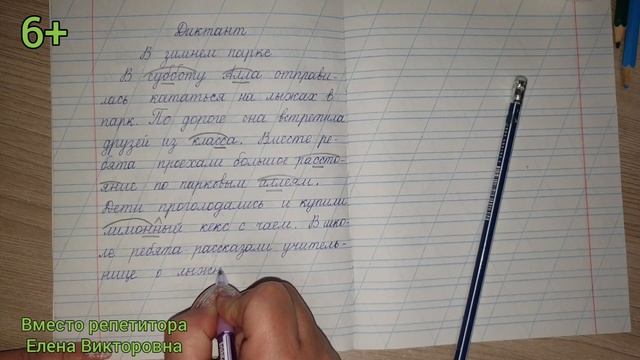 6+
Диктант
В зимнем парке
В субботу Алла отправи-
лась кататься на лыжах в
парк. По дороге она встретила
друзей из класса. Вместе ре-
бята проехали большое рассто-
яние по парковым аллеям.
Дети проголодались и купили
лимонный кекс с чаем. В шко-
ле ребята рассказали учитель-
нице о лыжн
Вместо репетитора
Елена Викторовна